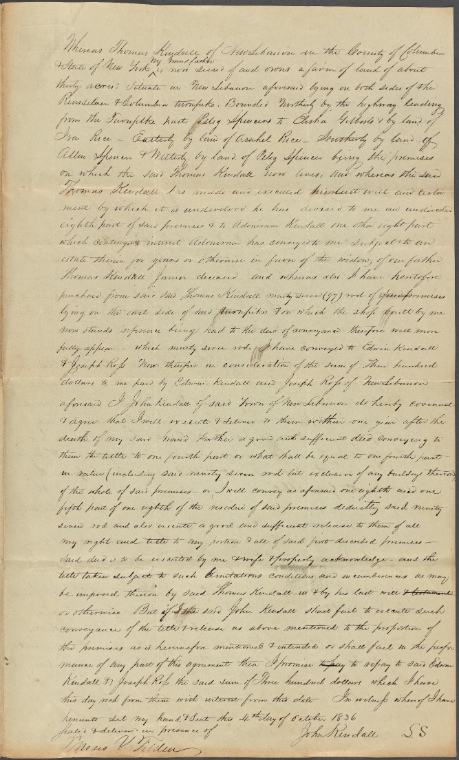 Whereas Thomas Kendall of New Lebanon in the County of Columbia
my said father
& State of New York is now seized of and owns a farm of land of about
thirty acres: Situate in New Lebanon aforesaid lying on both sides of the
Rensselaer & Columbia turnpike. Bounded Northerly by the highway leading
from the Turnpike past Peleg Spencers to Elisha Gilberts & by land of
Ira Rice - Easterly by land of Asahel Rice - Southerly by land of
Allen Spencer & Westerly by land of Peleg Spencer being the premises
on which the said Thomas Kendall now lives, and whereas the said
Thomas Kendall has made and executed his last will and testa
ment by which it is understood he has devised to me an undivided
eighth part of said premises & to Adoniram Kendall one other eight part
which contingent interest Adoniram has conveyed to me subject to an
estate therein for years or otherwise in favor of the widow, of our father
Thomas Kendall Junior deceased and whereas also I have heretofore
purchased from said Thomas Kendall ninety seven (97) rod of premises
lying on the east side of said turnpike & on which the shop built by me
now stands reference being had to the deed of conveyance therefore will more
fully appear - which ninety seven rods I have conveyed to Edwin Kendall
& Joseph Rofs Now therefore in consideration of the sum of Three hundred
dollars to me paid by Edwin Kendall and Joseph Rofs of New Lebanon
aforesaid I John Kendall of said Town of New Lebanon do hereby covenant
& agree that I will execute & deliver to them within one year after the
death of my said Grand Father a good and sufficient deed conveying to
them the title to one fourth part or what shall be equal to one fourth part
in value (including said ninety seven rod but exclusive of any buildings thereon)
of the whole of said premises - or I will convey as aforesaid one eighth and one
fifth part of one eighth of the residue of said premises deducting said ninety
seven rod and also execute a good and sufficient release to them of all
my right and title to any portion & all of said first described premises -
Said deed is to be executed by me & wife & properly acknowledged - and the
title taken subject to such limitations conditions and incumbrances as may
be imposed thereon by said Thomas Kendall in & by his last will & testament
or otherwise But if I the said John Kendall shall fail to execute such
conveyance of the title & release as above mentioned to the proportion of
the premises as is hereinafter mentioned & intended or shall fail in the perfor
mance of any part of this agreement then I promise to repay to said Edwin
Kendall & Joseph Rofs the said sum of Three hundred dollars which I have
this day rec'd from them with interest from this date In witness whereof I have
hereunto set my hand & Seal this 4th day of October 1836
John Kendall L S
sealed & deliver'd in presence of
Tilden